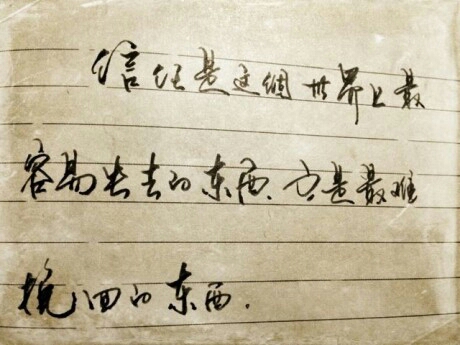 信任是这個世界上最
容易失去的东西、也是最难
挽回的东西.